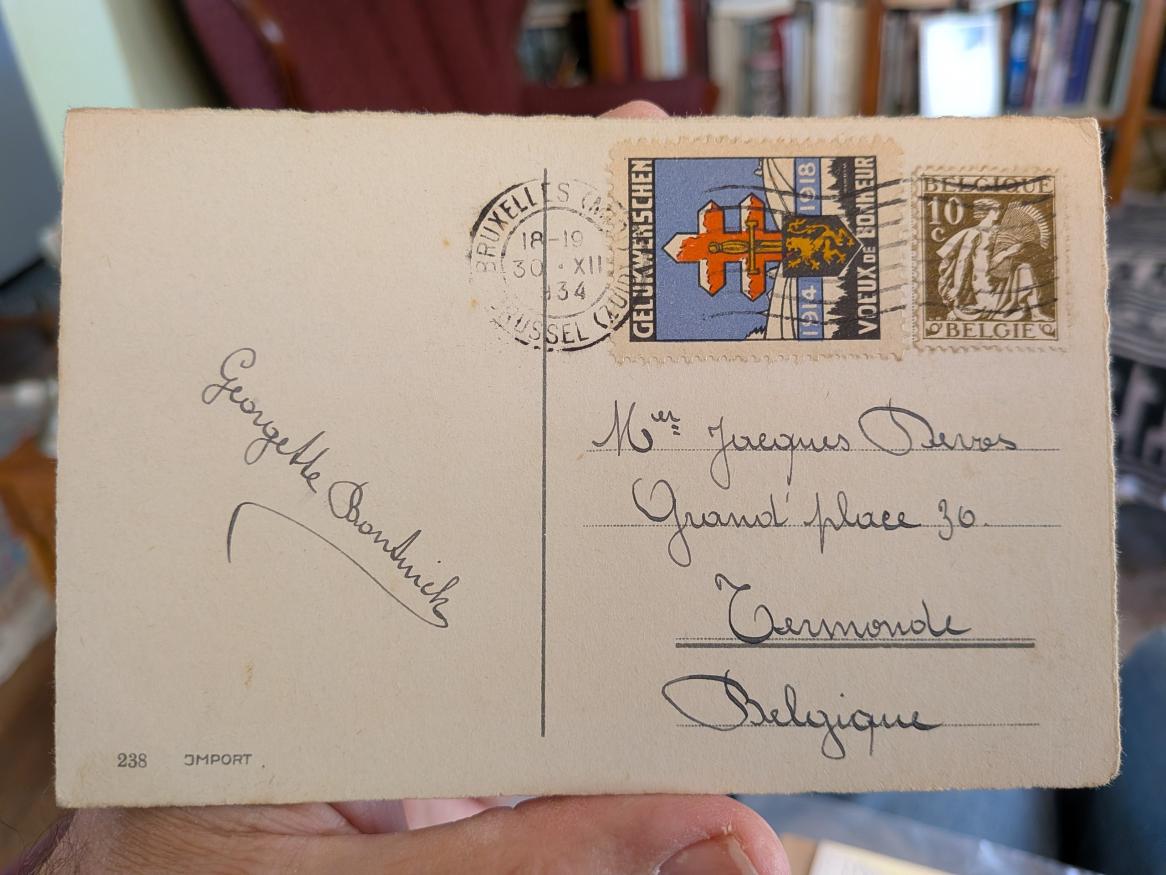 BRUXELLES (MIDI)
18-19
30 · XII
1934
BRUSSEL (ZUID)
GELUKWENSCHEN
1914 1918
VOEUX DE BONHEUR
BELGIQUE
10
c
BELGIE
Georgette Bontinck
Mer Jacques Devos
Grand' place 30.
Termonde
Belgique
238 IMPORT.